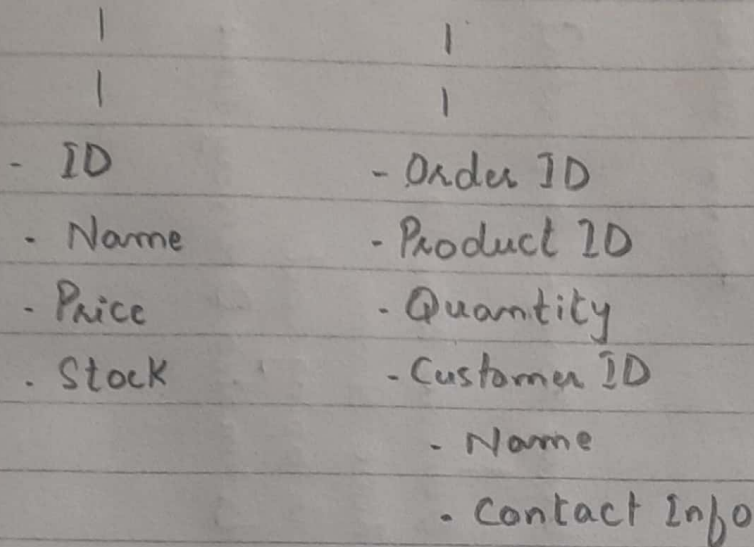 - ID
- Name
- Price
- Stock
- Order ID
- Product ID
- Quantity
- Customer ID
- Name
- Contact Info